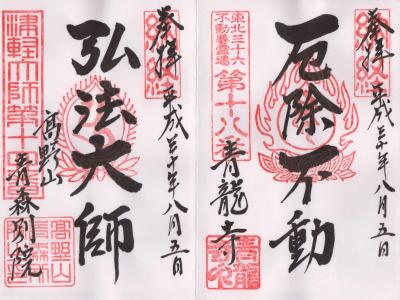 奉拝
平成三十年八月五日
東北三十六
不動尊霊場
第十八番
厄除不動
青龍寺
奉拝
平成三十年八月五日
津軽弘法大師第十四番
弘法大師
高野山
青森別院
高野山